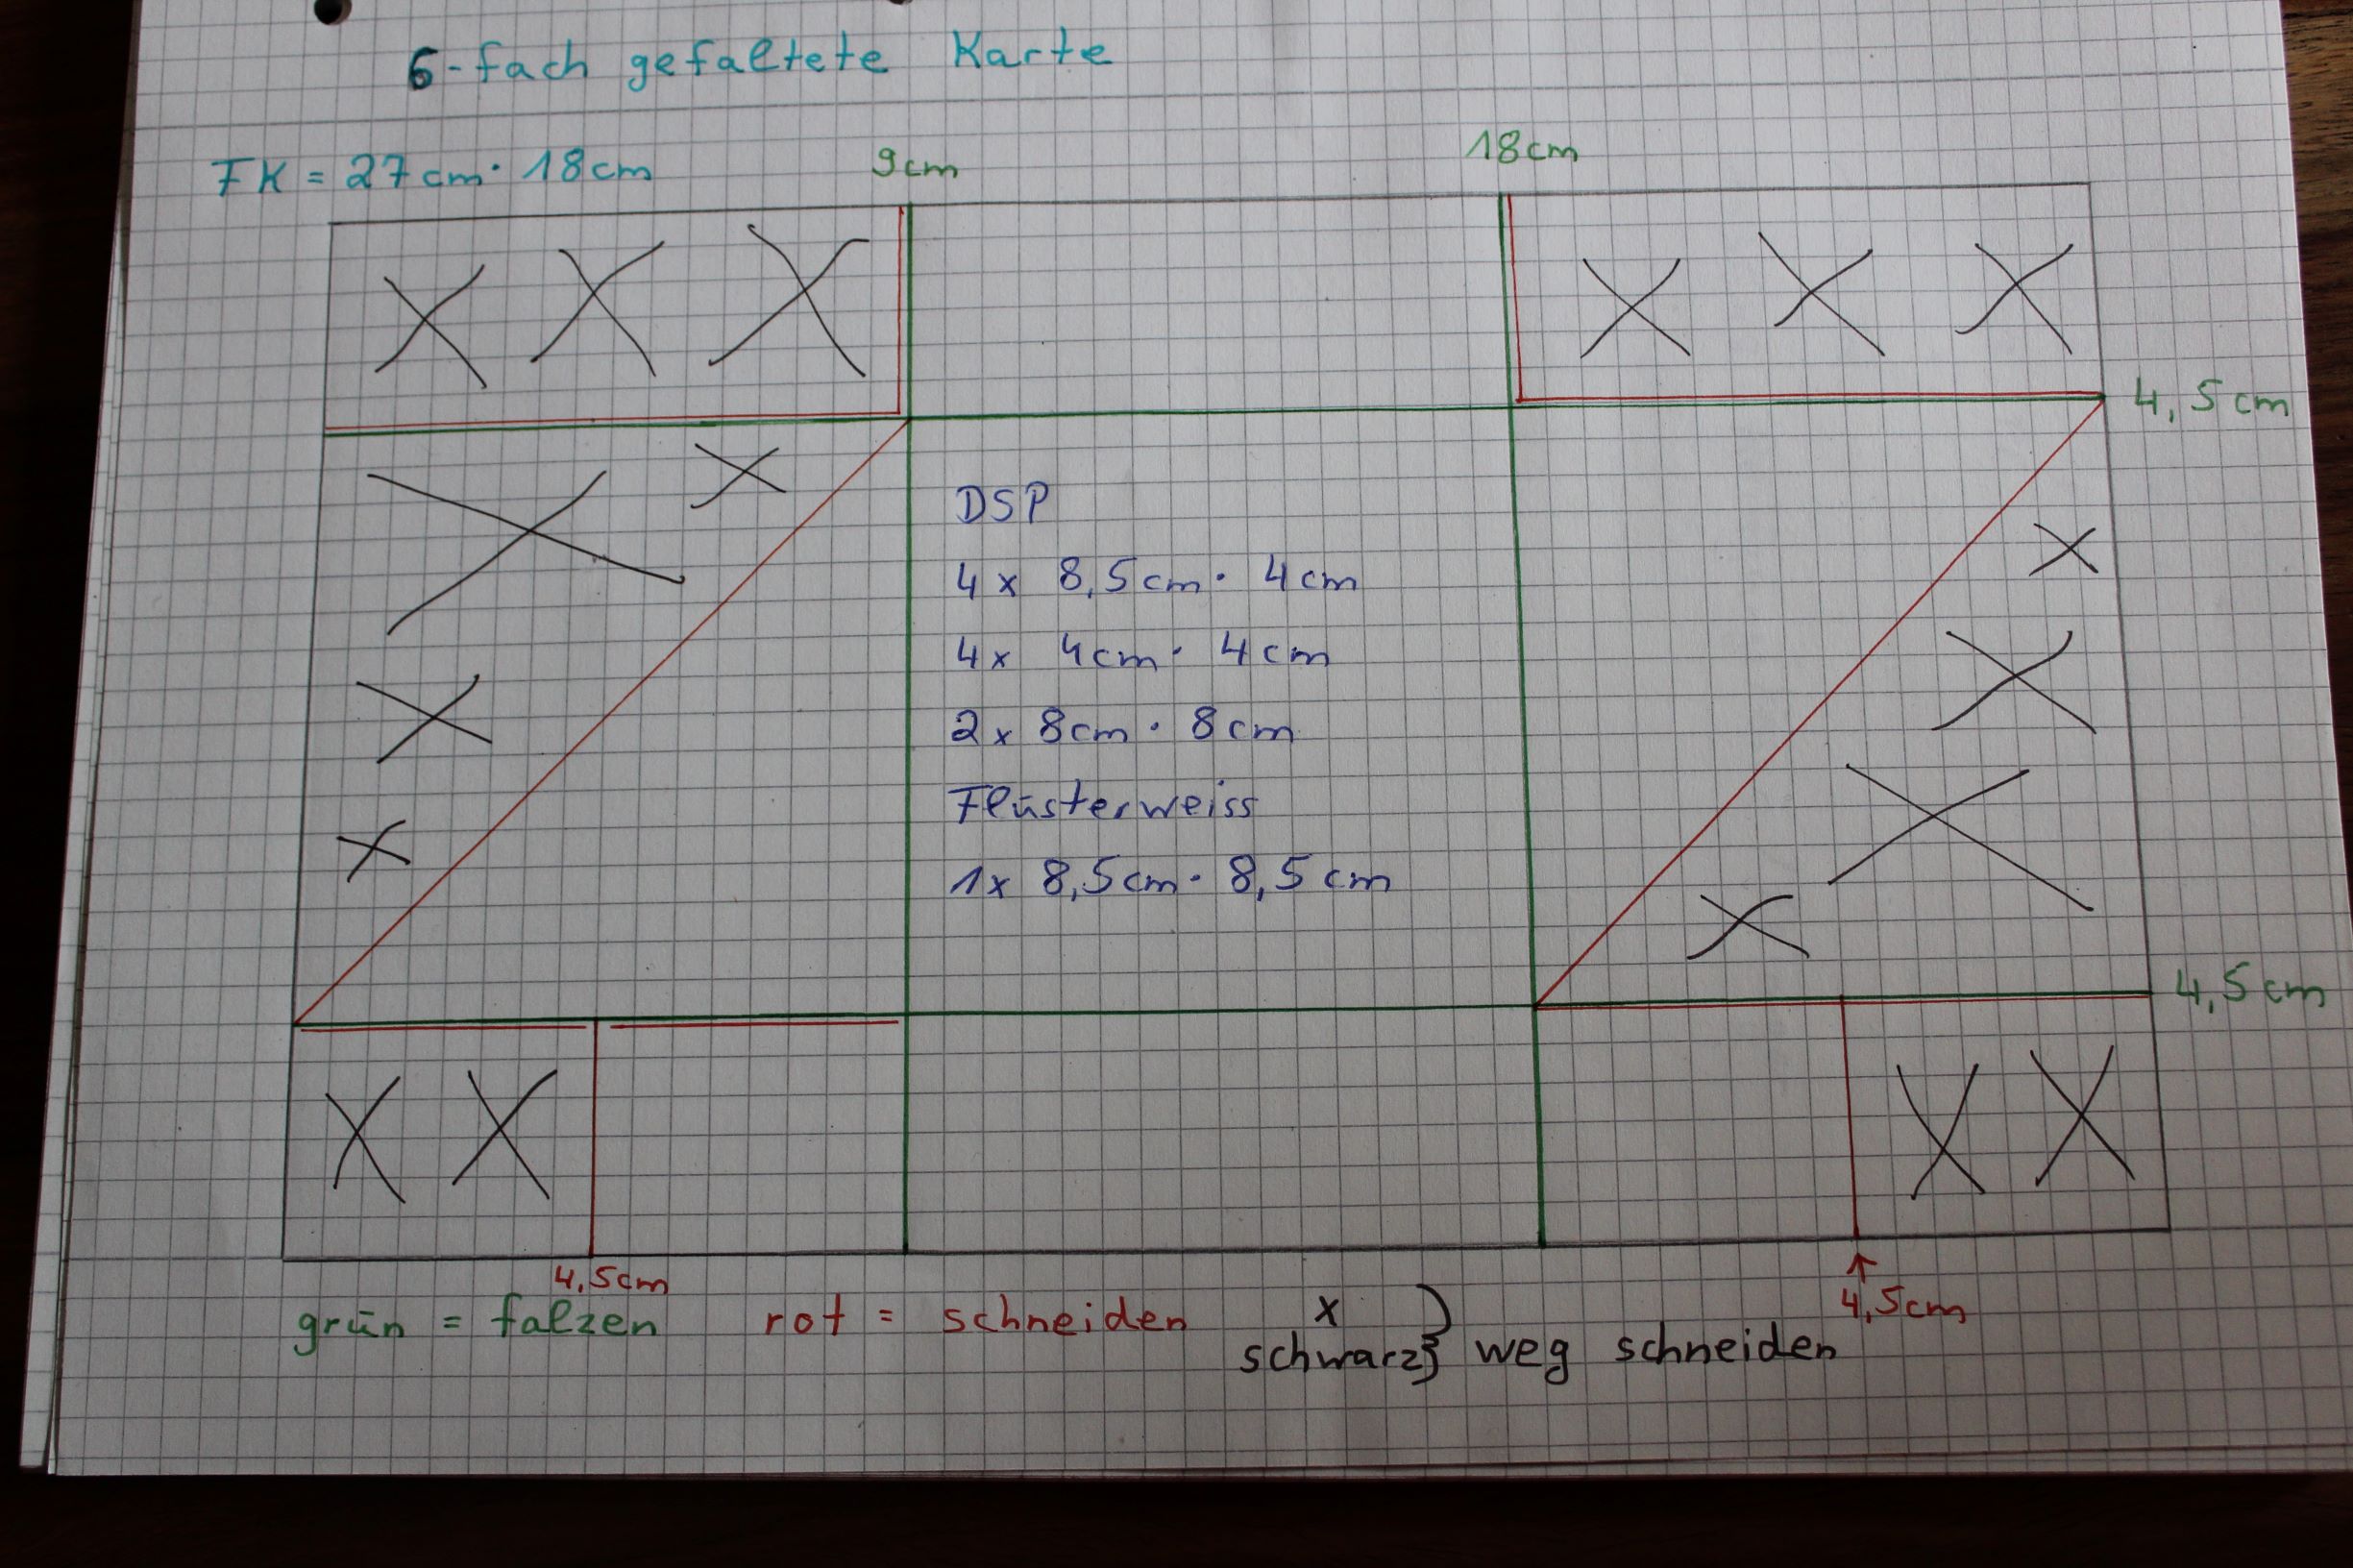 6-fach gefaltete Karte
FK = 27cm · 18cm
9cm
18cm
4,5cm
DSP
4x 8,5cm · 4cm
4x 4cm · 4cm
2x 8cm · 8cm
Flüsterweiss
1x 8,5cm · 8,5cm
4,5cm
4,5cm
4,5cm
grün = falzen rot = schneiden x
schwarz} weg schneiden